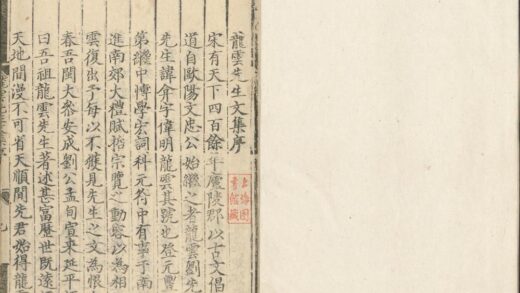 龍雲先生文集序
宋有天下四百餘年廬陵郡以古文倡
道自歐陽文忠公始繼之者龍雲劉先
先生諱弇字偉明龍雲其號也登元豐
第繼中博學宏詞科元符中有事于南
進南郊大禮賦哲宗覽之動容以為相
雲復出予每以不獲見先生之文為恨
春吾閩大參安成劉公孟旬宣來延平
曰吾祖龍雲先生著述甚富歷世既遠
天地間漫不可省天順間先君始得龍
上海圖
書館藏